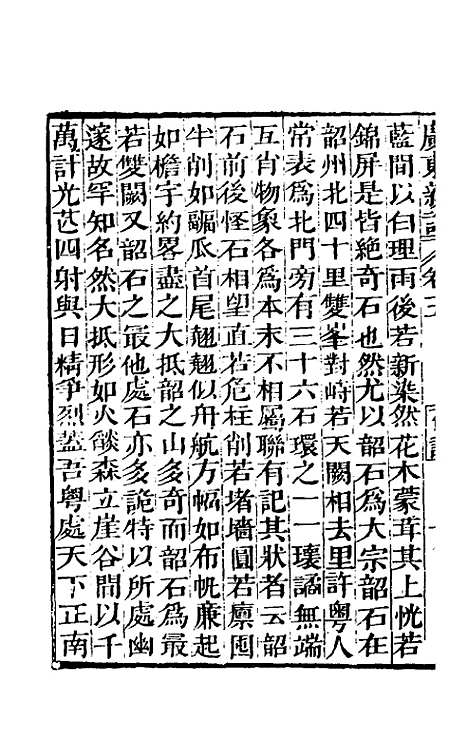 廣東新語
卷五
石語
藍間以白理雨後若新染然花木蒙茸其上恍若
錦屏是皆絶奇石也然尤以韶石爲大宗韶石在
韶州北四十里雙峯對峙若天闕相去里許粤人
常表爲北門旁有三十六石環之一一瓌譎無端
互肖物象各爲本末不相屬聯有記其狀者云韶
石前後怪石相望直若危柱削若堵墻圓若廪囤
半削如瓜首尾翹翹似舟航方幅如布帆廉起
如檐宇約畧盡之大抵韶之山多奇而韶石爲最
若雙闕又韶石之最他處石亦多詭特以所處幽
邃故罕知名然大抵形如火燄森立崖谷間以千
萬計光芒四射與日精爭烈蓋吾粤處天下正南